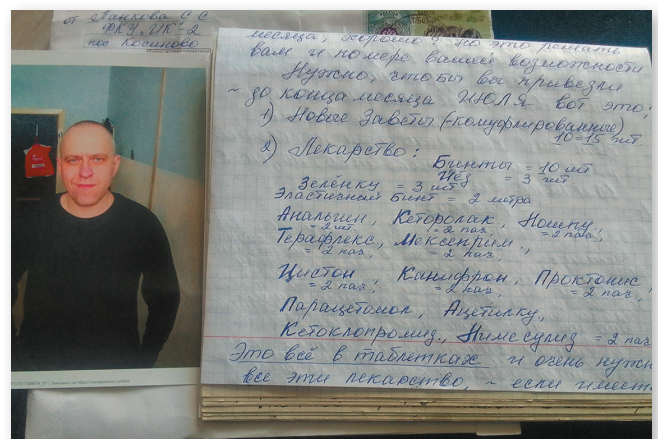 от Данкова С С
ФКУ ИК-2
пос Косиново
месяца, хорошо - но это решать
вам и по мере вашей возможности
Нужно, чтобы вы привезли
~ до конца месяца ИЮЛЯ вот это:
1) Новые Заветы (-комуфлированные)
10=15 шт
2) Лекарство:
Бинты = 10 шт
Йёд = 3 шт
Зелёнку = 3 шт
Эластичный Бинт = 2 штра
Анальгин, Кеторолак, Ношпу,
= 2 шт = 2 паз, = 2 паз,
Терафлекс, Мексенрим.,
= 2 паз, = 2 паз,
Цистон, Канифрон, Проктонис,
= 2 паз, = 2 паз, = 2 паз,
Парацетомол, Ацетилку,
Кетоклопромид., Нимесулид = 2 паз
Это всё в таблетках и очень нужн
все эти лекарство, ~ если имеет